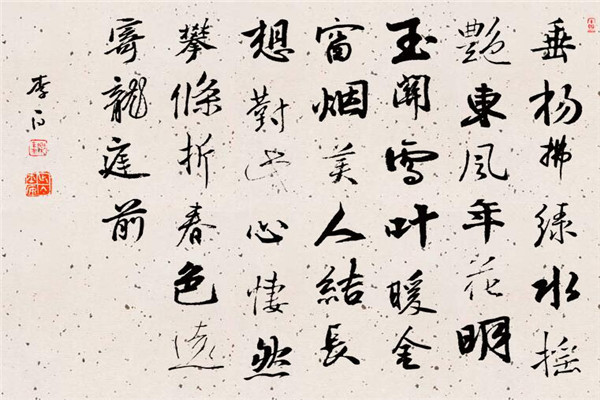 垂杨拂緑水摇
艷東风年花明
玉関雪叶暖金
窗烟美人結長
想對此心悽然
攀條折春色遠
寄龍庭前
李白